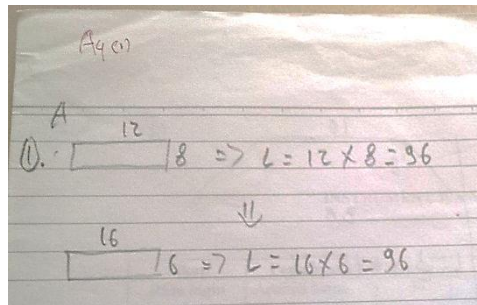 A
12
①. 8 => L = 12 × 8 = 96
⇓
16
6 => L = 16 × 6 = 96